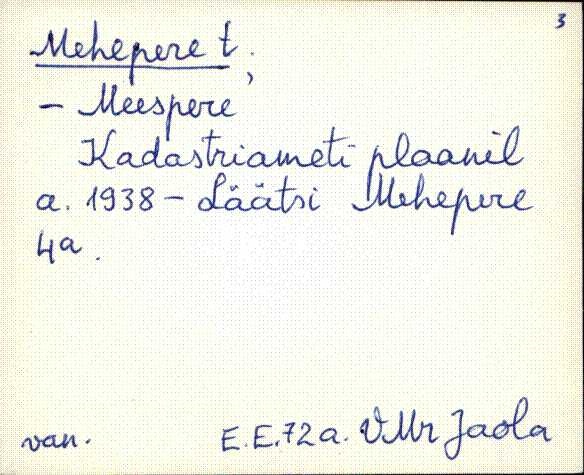 3
Mehepere t;
- Meespere
Kadastriameti plaanil
a. 1938 - Läätsi Mehepere
4a.
van. E.E. 72 a. VMr Jaola